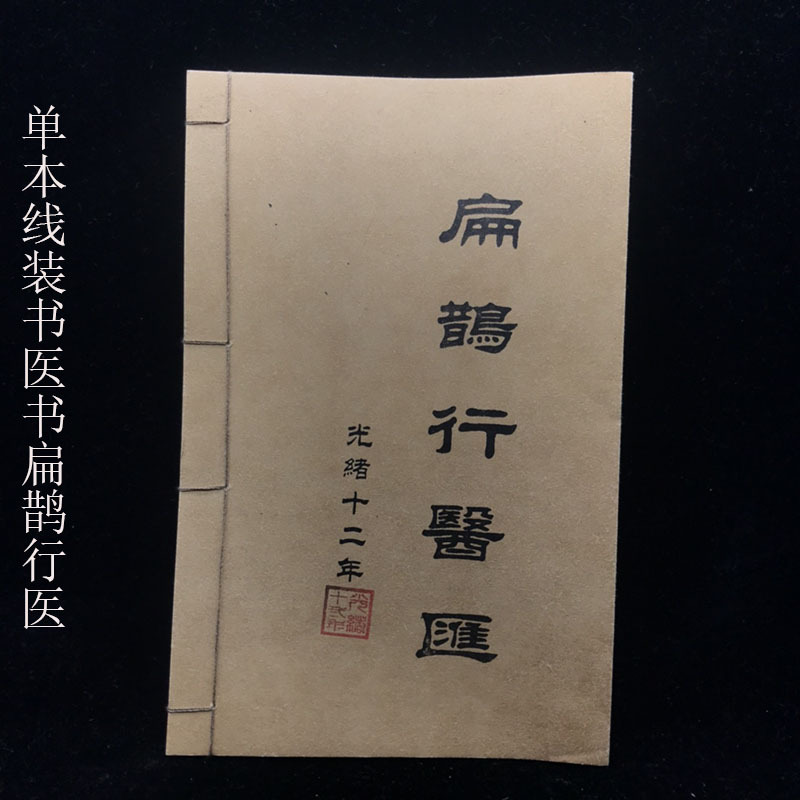 单本线装书医书扁鹊行医
扁鵲行醫匯
光緒十二年
光緒
十二年